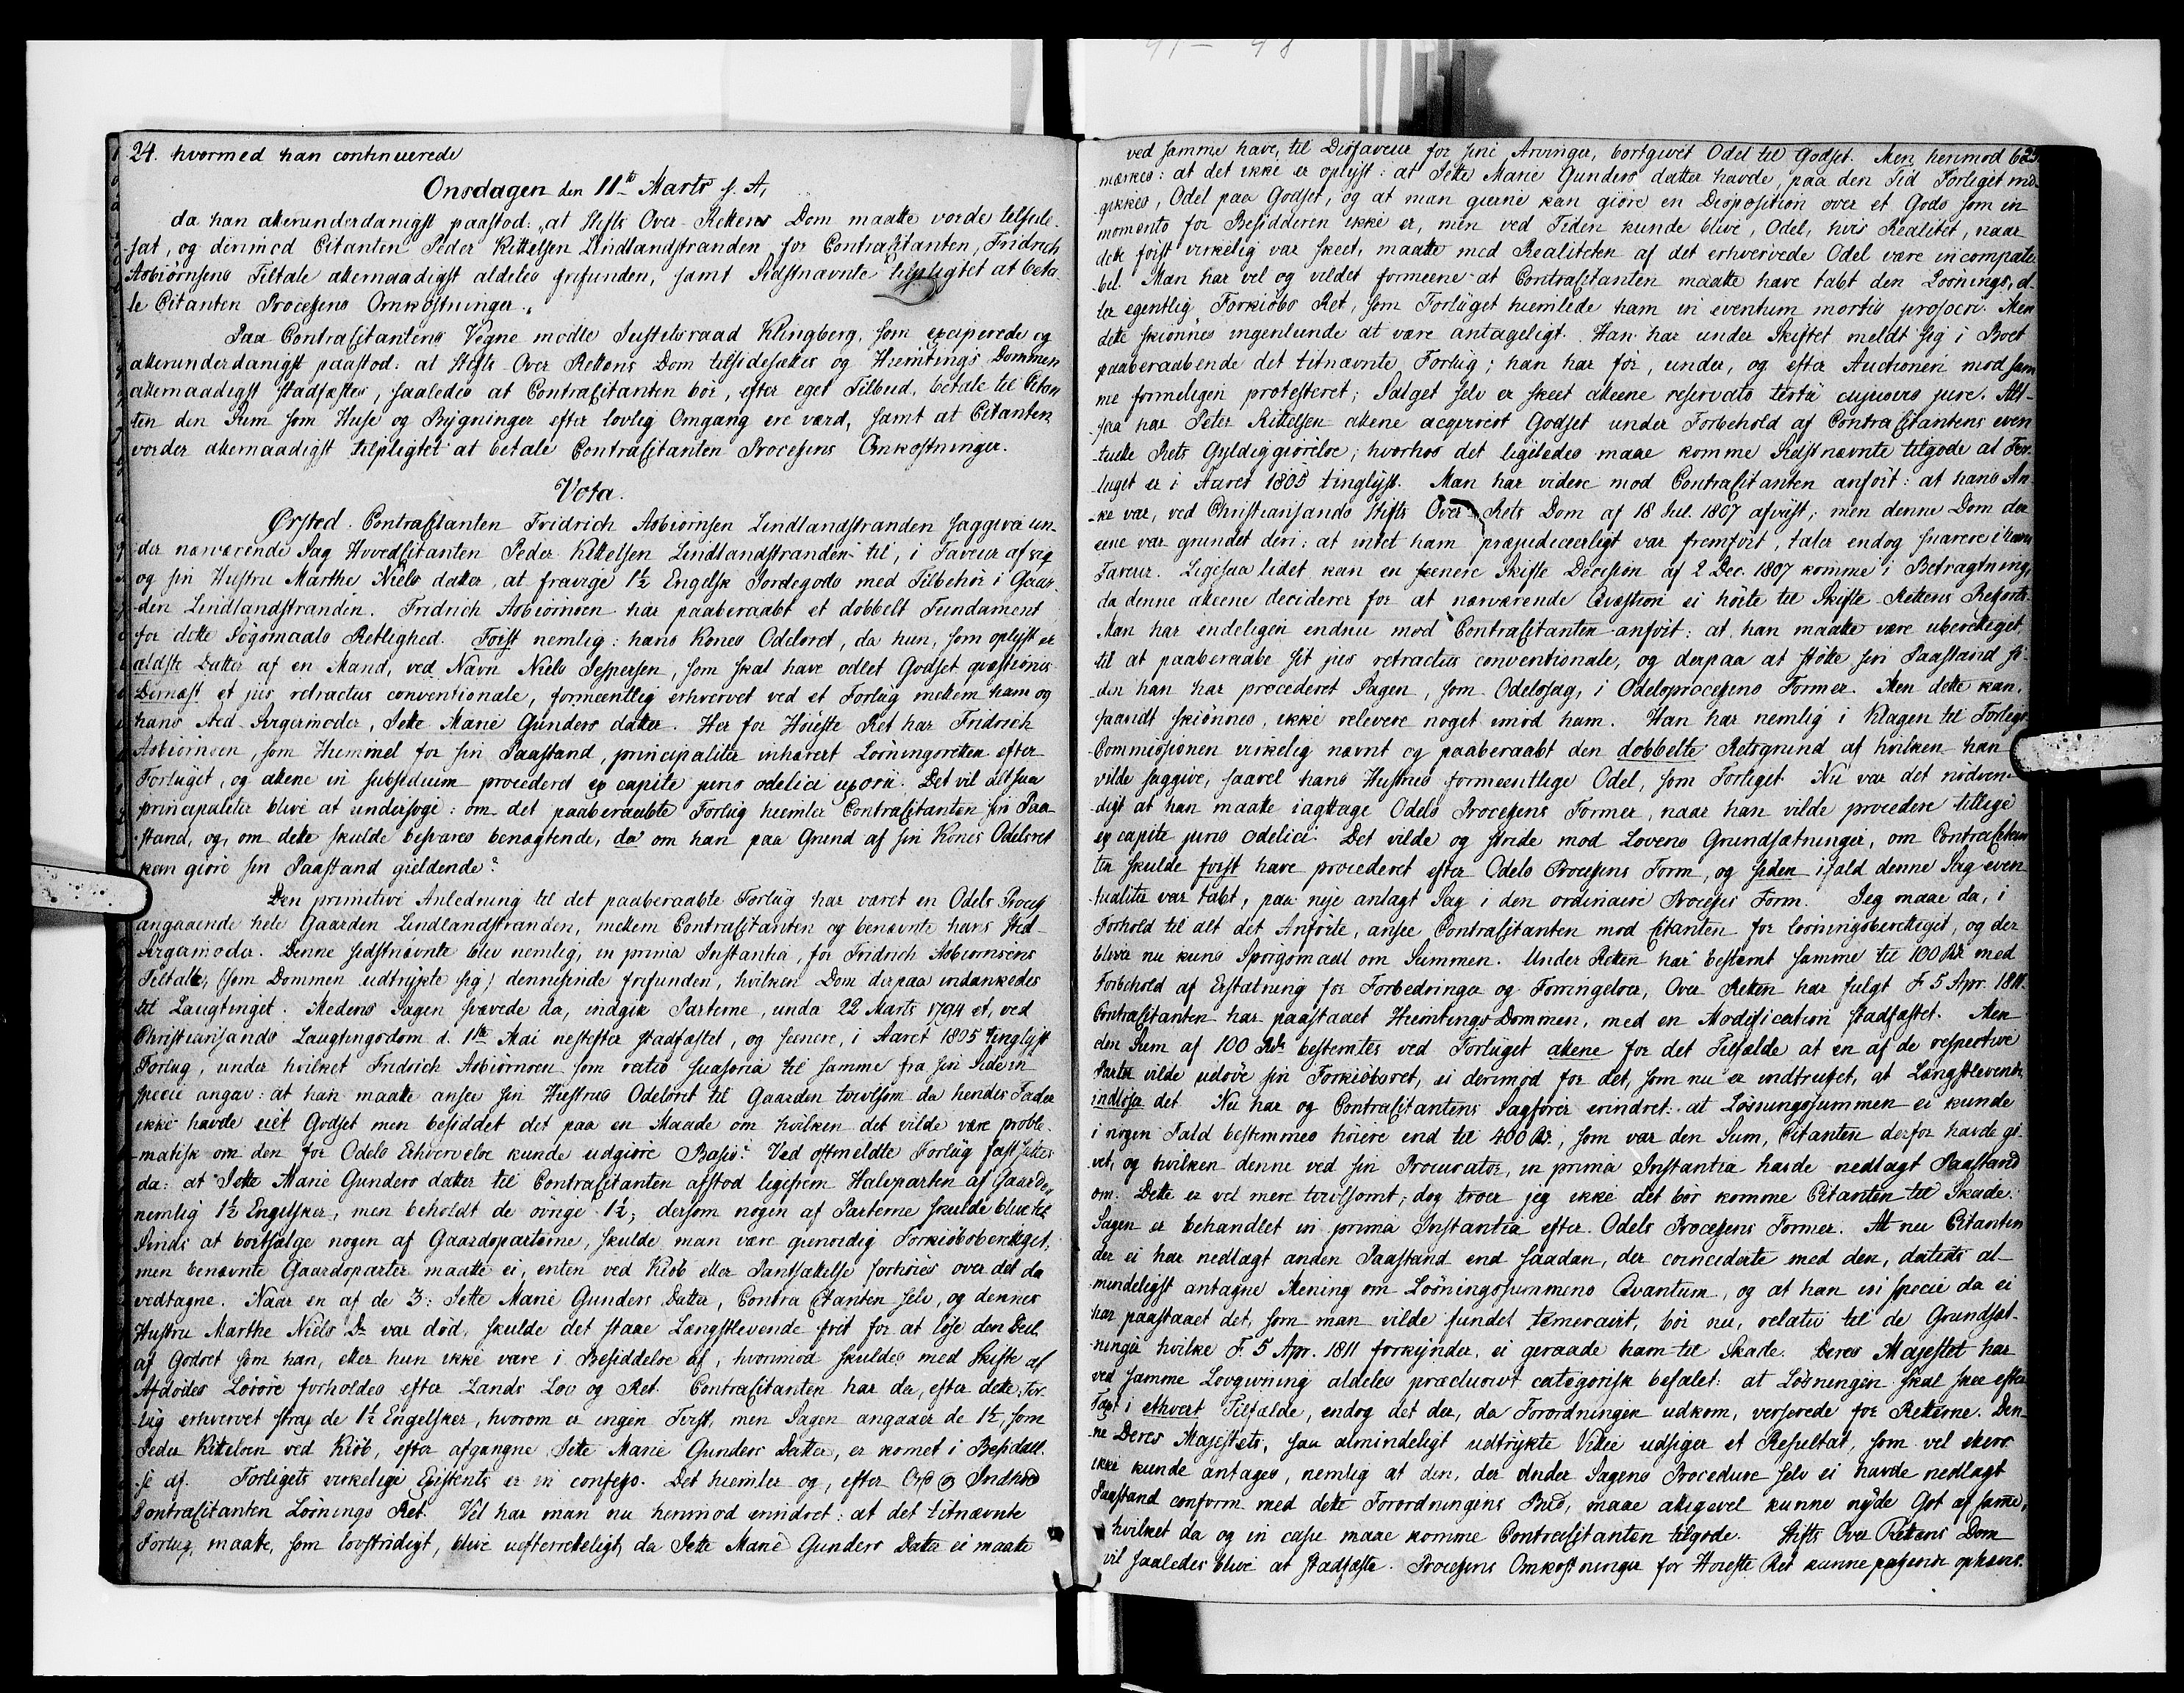 24. hvormed han continuerede
Onsdagen den 11te Marts s. A,
da han allerunderdanigst paastod: "at Stifts Over-Rettens Dom maatte vorde tilside-
sat, og dermed Citanten Peder Kittelsen Lindlandstranden, for Contracitanten, Fridrich
Asbiørnsens Tiltale allernaadigst aldeles frifunden, samt Sidstnævnte tilpligtet at beta-
le Citanten Processens Omkostninger."
Paa Contracitantens Vegne mødte Justitsraad Klingberg, som exciperede og
allerunderdanigst paastod: at Stifts-Over Rettens Dom tilsidesættes og Hiemtings Dommen
allernaadigst stadfæstes, saaledes at Contracitanten bør, efter eget Tilbud, betale til Citan
ten den Sum som Huse og Bygninger efter lovlig Omgang ere værd, samt at Citanten
vorder allernaadigst tilpligtet at betale Contracitanten Processens Omkostninger.
Vota.
Ørsted. Contracitanten Fridrich Asbiørnsen Lindlandstranden saggiver un-
der nærværende Sag Hovedcitanten Peder Kittelsen Lindlandstranden til, i Faveur af sig
og sin Hustru Marthe Niels datter, at fravige 1½ Engelsk Jordegods med Tilbehør i Gaar-
den Lindlandstranden. Fridrich Asbiørnsen har paaberaabt et dobbelt Fundament
for dette Søgsmaals Retlighed. Først nemlig: hans Kones Odelsret, da hun, som oplyst er
ældste Datter af en Mand, ved Navn Niels Jespersen, som skal have odlet Godset qvæstionis
Dernæst et jus retractus conventionale, formeentlig erhvervet ved et Forliig mellem ham og
hans Sted-Svigermoder, Jette Marie Gunders datter. Her for Høieste Ret har Fridrich
Asbiørnsen, som Hiemmel for sin Paastand, principaliter inhæreret Løsningsretten efter
Forliiget, og allene in subsidium procederet ex capite juris odelici uxoris. Det vil altsaa
principaliter blive at undersøge: om det paaberaabte Forliig hiemler Contracitanten sin Paa-
stand, og, om dette skulde besvares benægtende, da om han paa Grund af sin Kones Odelsret
kan giøre sin Paastand gieldende?
Den primitive Anledning til det paaberaabte Forliig har været en Odels Proces
angaaende hele Gaarden Lindlandstranden, mellem Contracitanten og benævnte hans Sted-
Svigermoder. Denne sidstnævnte blev nemlig, in prima Instantia, for Fridrich Asbiørnsens
Tiltale, (som Dommen udtrykte sig) dennesinde frifunden, hvilken Dom derpaa indankedes
til Laugtinget. Medens Sagen svævede da, indgik Parterne, under 22 Marts 1794 et, ved
Christiansands Laugtingsdom d. 1ste Mai nestefter stadfæstet, og seenere, i Aaret 1805 tinglyst
Forliig, under hvilket Fridrich Asbiørnsen som ratio suasoria til samme fra sin Side in
specie angav: at han maatte ansee sin Hustrues Odelsret til Gaarden tvivlsom da hendes Fader
ikke havde eiet Godset men besiddet det paa en Maade om hvilken det vilde være proble-
matisk om den for Odels Erhvervelse kunde udgiøre Basis. Ved oftmeldte Forliig fastsattes
da: at Jette Marie Gunders datter til Contracitanten afstod ligesom Halvparten af Gaarden
nemlig 1½ Engelsker, men beholdt de øvrige 1½; dersom nogen af Parterne skulde blive til
Sinds at bortsælge nogen af Gaardsparterne, skulde man være giensidig Forkiøbsberettiget;
men benævnte Gaardsparter maatte ei, enten ved Kiøb eller Pantsættelse forhøies over det da
vedtagne. Naar en af de 3: Jette Marie Gunders Datter, Contra Citanten selv, og dennes
Hustru Marthe Niels Dr var død, skulde det staae Længstlevende frit for at løse den Deel
af Godset som han, eller hun ikke være i Besiddelse af, hvorimod skuldes med Skifte af
Afdødes Løsøre forholdes efter Lands Lov og Ret. Contracitanten har da, efter dette For-
liig erhvervet strax de 1½ Engelsker, hvorom er ingen Tvist, men Sagen angaaer de 1½, som
Peder Kittelsen ved Kiøb, efter afgangne Jette Marie Gunders Datter, er kommet i Besiddel-
se af. Forligets virkelige Existents er in confesso. Det hiemler og, efter Ord og Indhold
Contracitanten Løsnings Ret. Vel har man nu herimod erindret: at det titnævnte
Forliig, maatte, som lovstridigt, blive uefterretteligt, da Jette Marie Gunders Datter ei maatte
ved samme have, til Disfaveur for sine Arvinger, bortgivet Odel til Godset. Men herimod be- 25.
mærkes: at det ikke er oplyst: at Jette Marie Gunders datter havde, paa den Tid Forliget ind-
gikkes, Odel paa Godset, og at man gierne kan giøre en Disposition over et Gods som in
momento for Besidderen ikke er, men ved Tiden kunde blive, Odel, hvis Realitet, naar
dette først virkelig var skeet, maatte med Realiteten af det erhvervede Odel være incompati-
bel. Man har vel og villet formeene at Contracitanten maatte have tabt den Løsnings, el-
ler egentlig Forkiøbs Ret, som Forliiget hiemlede ham in eventum mortis prosocri. Men
dette skiønnes ingenlunde at være antageligt. Han har under Skiftet meldt sig i Boet
paaberaabende det titnævnte Forliig; han har før, under, og efter Auctionen mod sam-
me formeligen protesteret; Salget selv er skeet alleene reservato tertii cujusvis jure. Alt-
saa har Peter Kittelsen allene acqvireret Godset under Forbehold af Contracitantens even
tuelle Rets Gyldiggiørelse; hvorhos det ligeledes maae komme Sidstnævnte tilgode at For-
liiget er i Aaret 1805 tinglyst. Man har videre mod Contracitanten anført: at hans An-
ke var, ved Christiansands Stifts Over-Rets Dom af 18 Jul. 1807 afviist; men denne Dom der
eene var grundet deri: at intet ham præjudiceerligt var fremført, taler endog snarere i hans
Faveur. Ligesaa lidet kan en seenere Skifte Decision af 2 Dec. 1807 komme i Betragtning,
da denne alleene deciderer for at nærværende Qvæstion ei hørte til Skifte-Rettens Resort.
Man har endeligen endnu mod Contracitanten anført: at han maatte være uberettiget
til at paaberaabe sit jus retractus conventionale, og derpaa at støtte sin Paastand si-
den han har procederet Sagen, som Odelssag, i Odelsprocessens Former. Men dette kan,
saavidt skiønnes, ikke relevere noget imod ham. Han har nemlig i Klagen til Forligs
Commissionen virkelig nævnt og paaberaabt den dobbelte Retsgrund af hvilken han
vilde saggive, saavel hans Hustrues formeentlige Odel, som Forliget. Nu var det nødven-
digt at han maatte iagttage Odels Processens Former, naar han vilde procedere tillige
ex capite juris odelici. Det vilde og stride mod Lovens Grundsætninger, om Contracitan-
ten skulde først have procederet efter Odels Processens Form, og siden ifald denne Sag even
tualiter var tabt, paa nye anlagt Sag i den ordinaire Proces's Form. Jeg maae da, i
Forhold til alt det Anførte, ansee Contracitanten mod Citanten for løsningsberettiget, og der
bliver nu kuns Spørgsmaal om Summen. Under Retten har bestemt samme til 100 Rdr med
Forbehold af Erstatning for Forbedringer og Forringelser, Over Retten har fulgt F. 5 Apr. 1811.
Contracitanten har paastaaet Hiemtings Dommen, med en Modification stadfæstet. Men
den Sum af 100 Rdr bestemtes ved Forliiget allene for det Tilfælde at en af de respective
Parter vilde udøve sin Forkiøbsret, ei derimod for det, som nu er indtruffet, at Længstlevende
indløser det. Nu har og Contracitantens Sagfører erindret: at Løsningssummen ei kunde
i nogen Fald bestemmes høiere end til 400 Rdr., som var den Sum, Citanten derfor havde gi-
vet, og hvilken denne ved sin Procurator, in prima Instantia havde nedlagt Paastand
om. Dette er vel mere tvivlsomt; dog troer jeg ikke det bør komme Citanten til Skade.
Sagen er behandlet in prima Instantia efter Odels Processens Former. At nu Citanten
der ei har nedlagt anden Paastand end saadan, der coinciderte med den, datids al-
mindeligst antagne Mening om Løsningssummens Qvantum, og at han in specie da ei
har paastaaet det, som man vilde fundet temerairt, bør nu, relativ til de Grundsæt-
ninger hvilke F. 5 Apr. 1811 forkynder, ei geraade ham til Skade. Deres Majestet har
ved samme Lovgivning aldeles præcluderet categorisk befalet: at Løsningen skal skee efter
Taxt i ethvert Tilfælde, endog det der, da Forordningen udkom, verserede for Retterne. Den-
ne Deres Majestets, saa almindeligt udtrykte Villie udsiger et Resultat, som vel ellers
ikke kunde antages, nemlig at den, der under Sagens Procedure selv ei havde nedlagt
Paastand conform med dette Forordningens Bud, maae alligevel kunne nyde Got af samme,
hvilket da og in casu maae komme Contracitanten tilgode. Stifts Over Rettens Dom
vil saaledes blive at stadfæste. Processens Omkostninger for Høieste Ret kunne passende ophæves.